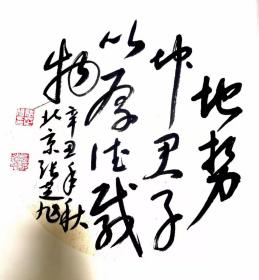 地势
坤君子
以厚德载
物
辛丑年秋
北京张建旭